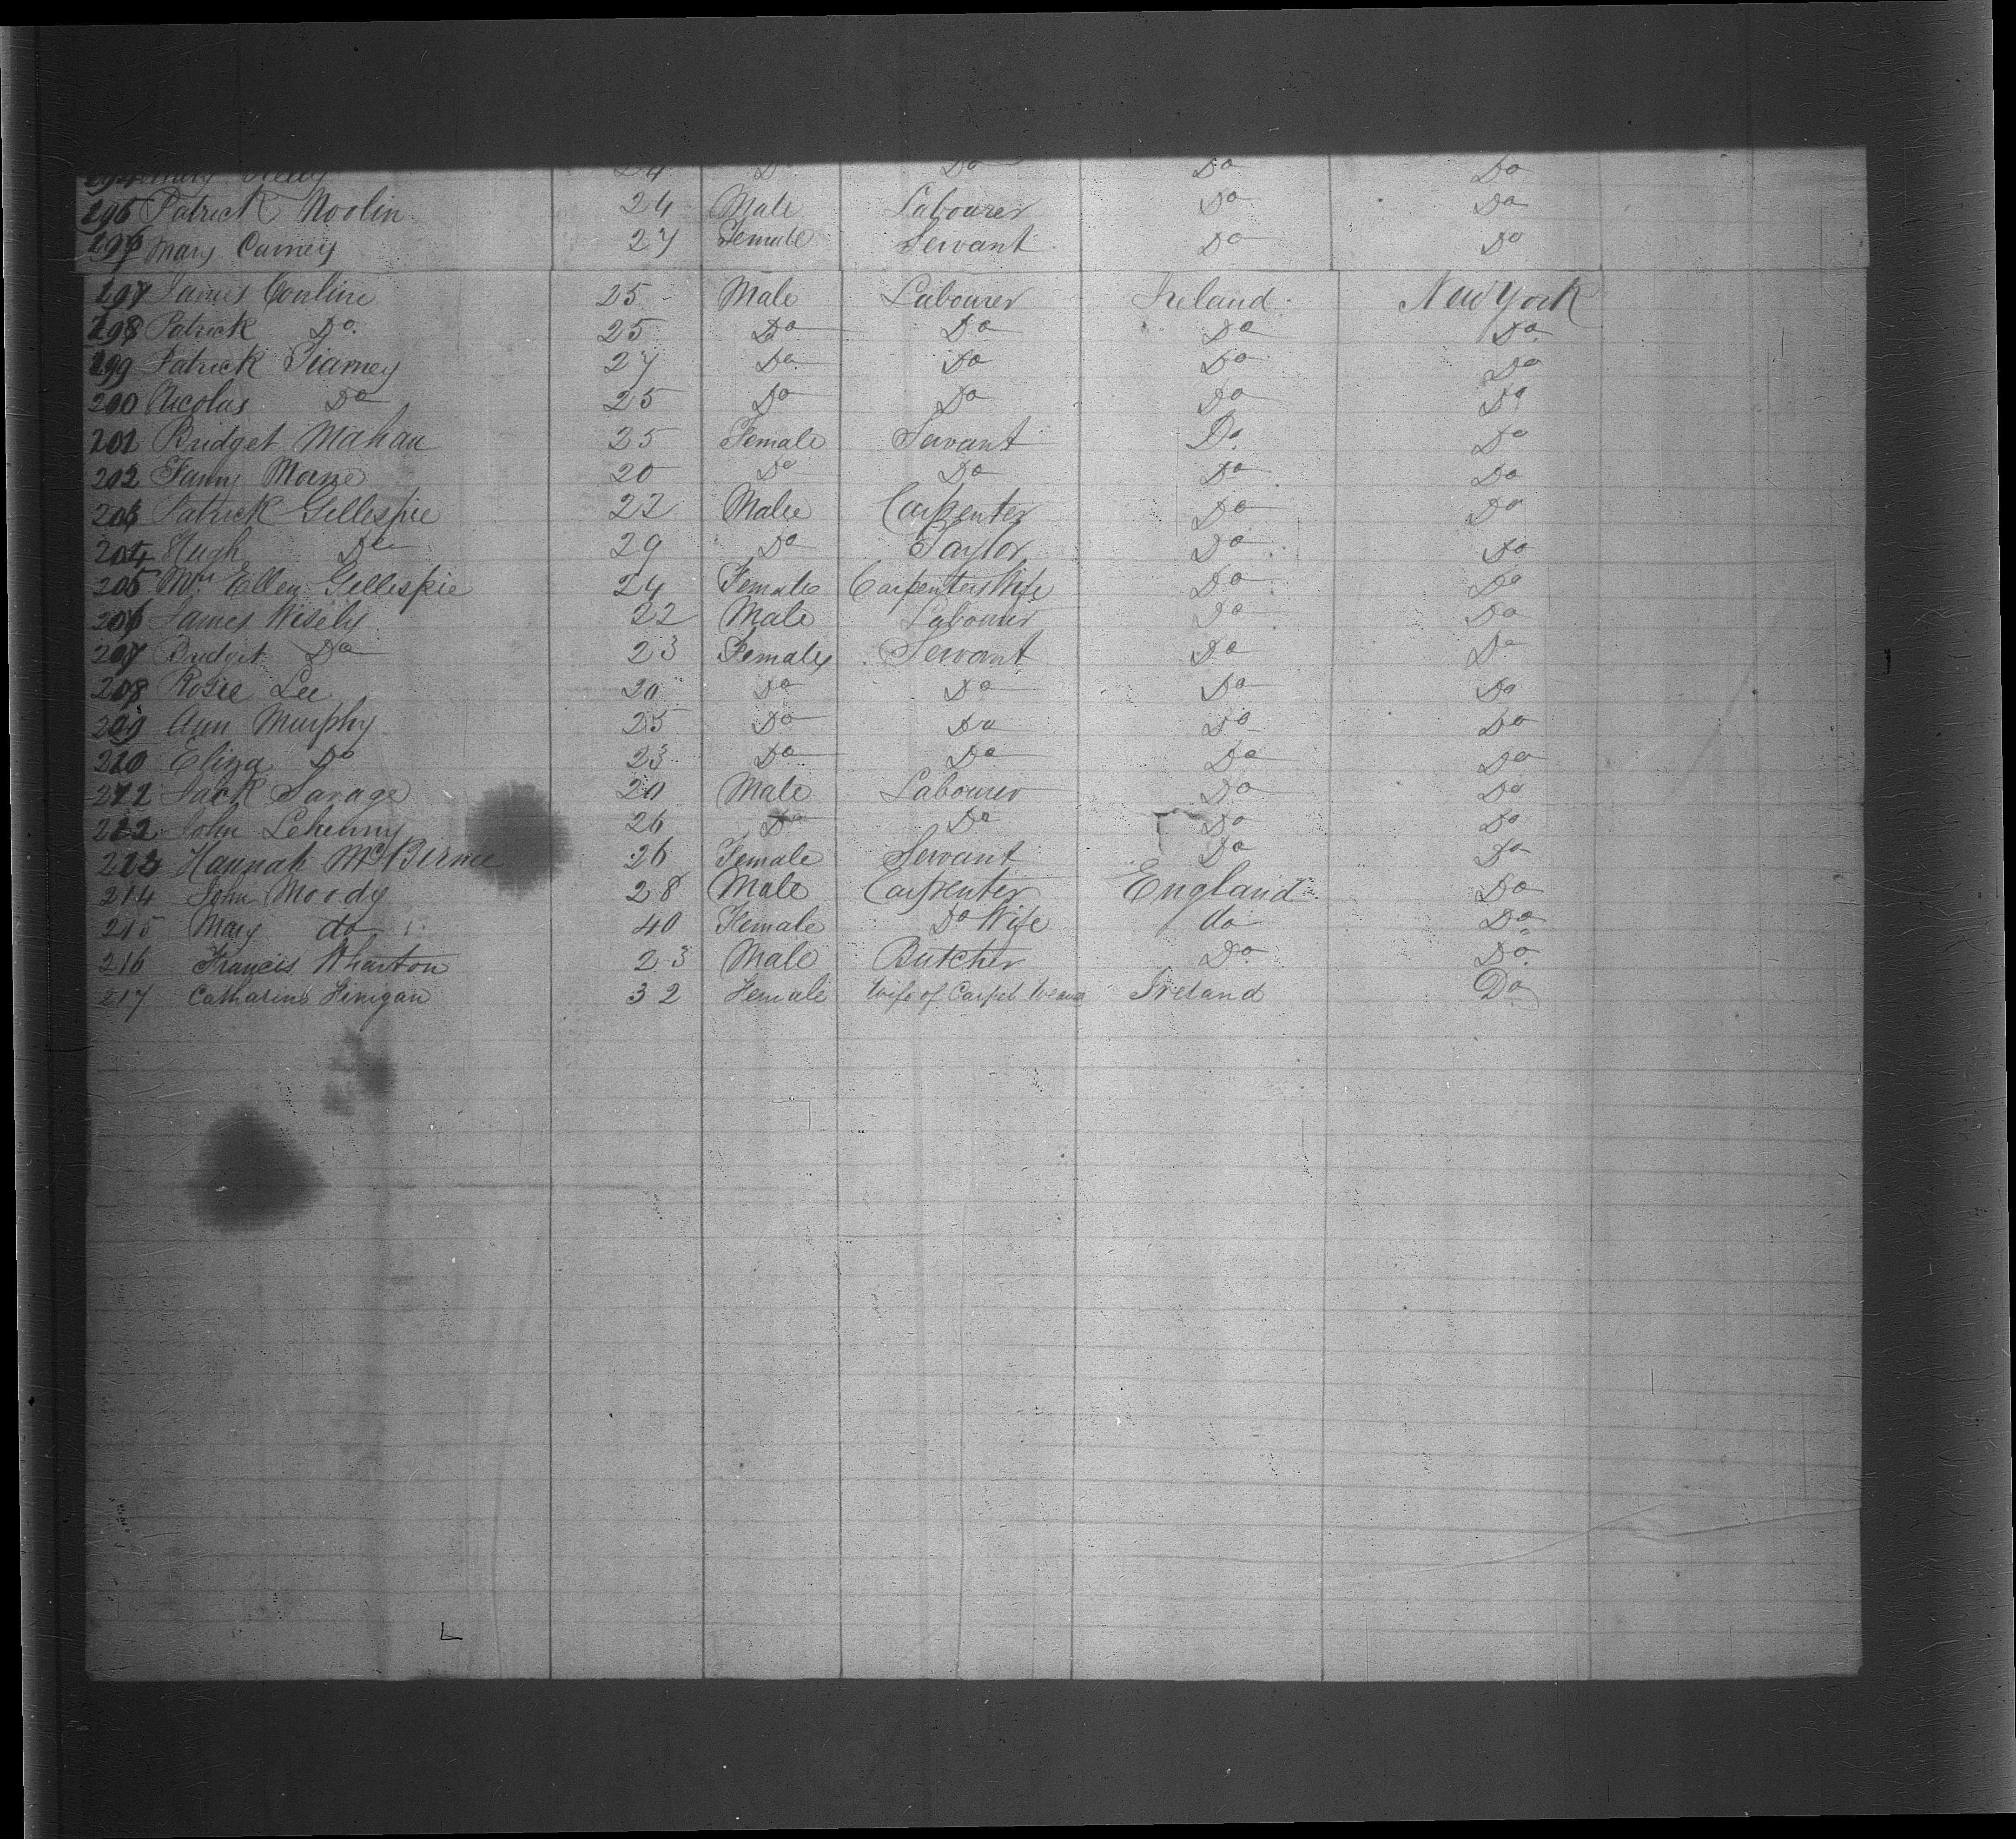 24 Do Do Do Do
Patrick Noolin 24 Male Labourer Do Do
Mary Carney 27 Female Servant Do Do
James Conline 25 Male Labourer Ireland New York
298 Patrick Do. 25 Do Do Do Do
299 Patrick Tiarney 27 Do Do Do Do
200 Nicolas Do 25 Do Do Do Do
201 Bridget Mahan 25 Female Servant Do. Do
202 Fanny 20 Do Do Do Do
203 Patrick Gillespie 22 Male Carpenter Do Do
204 Hugh Do 29 Do Taylor Do Do
205 Mrs Ellen Gillespie 24 Female Carpenters Wife Do Do
206 James Wisely 22 Male Labourer Do Do
207 Bridget Do 23 Female Servant Do Do
208 Rosie Lee 20 Do Do Do Do
209 Ann Murphy 25 Do Do Do Do
210 Eliza Do 23 Do Do Do Do
211 Jack Savage 20 Male Labourer Do Do
212 John Lehenny 26 Do Do Do Do
213 Hannah McBirnie 26 Female Servant Do Do
214 John Moody 28 Male Carpenter England Do
215 Mary do 40 Female Do Wife do Do
216 Francis Wharton 23 Male Butcher Do Do.
217 Catharine Finigan 32 Female Wife of Carpet Ireland Do